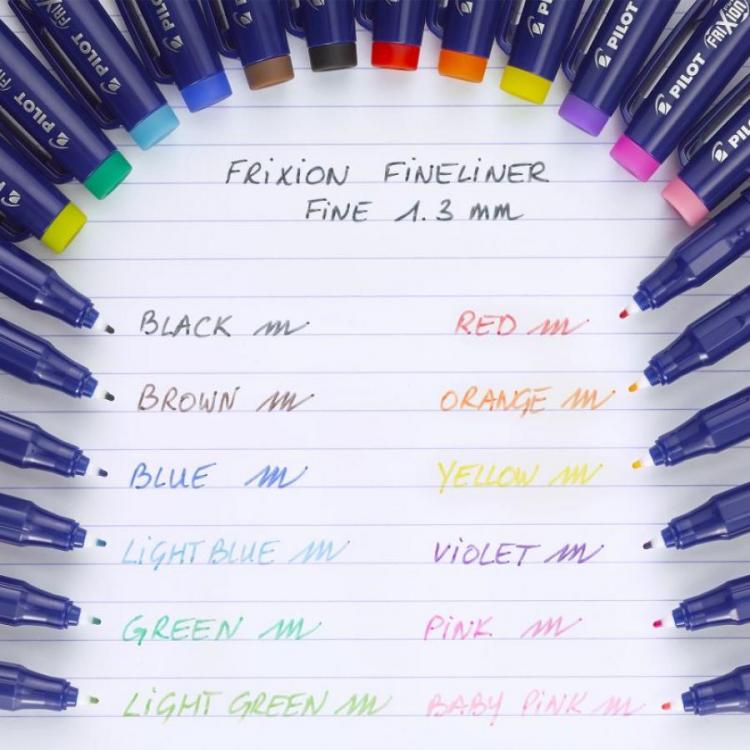 PILOT
FRiXiON
PILOT
FRiXiON
PILOT
PILOT
FRiXiON
PILOT
FRiXiON FiNELiNER
FiNE 1.3 mm
BLACK
RED
BROWN
ORANGE
BLUE
YELLOW
LiGHT BLUE
ViOLET
GREEN
PiNK
LiGHT GREEN
BABY PiNK